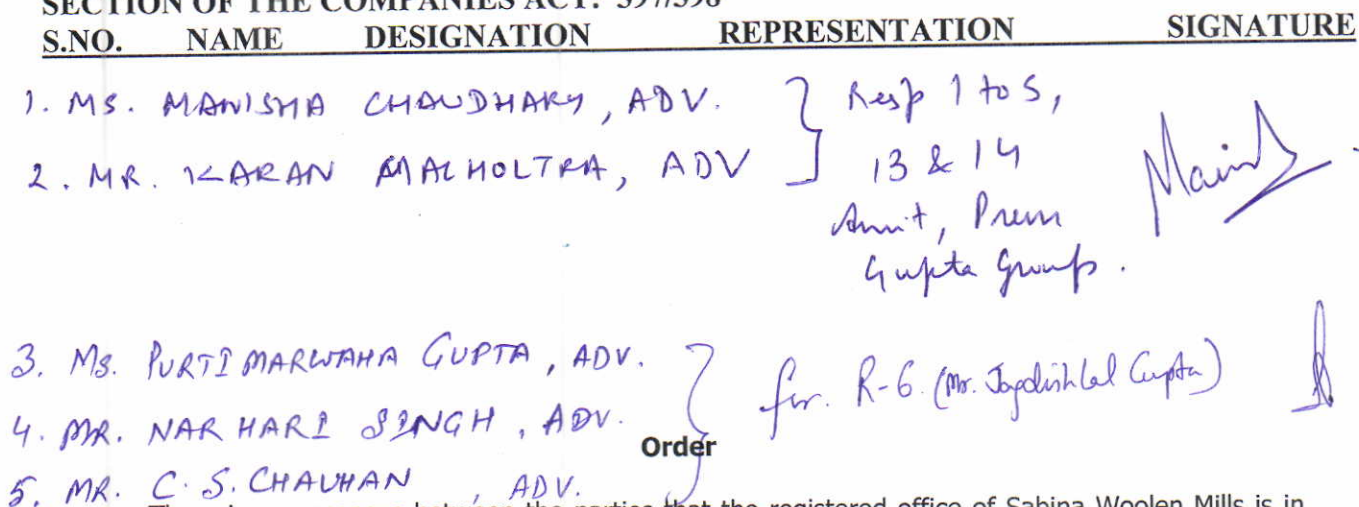 SECTION OF THE COMPANIES ACT: 397/398
S.NO. NAME DESIGNATION REPRESENTATION SIGNATURE
1. MS. MANISHA CHAUDHARY, ADV. } Resp 1 to 5,
2. MR. KARAN MALHOLTRA, ADV 13 & 14
Amit, Prem
Gupta Group.
3. MS. PURTI MARWAHA GUPTA, ADV.
4. MR. NAR HARI SINGH, ADV. } for. R-6. (Mr. Jagdish Lal Gupta)
Order
5. MR. C. S. CHAUHAN, ADV.
between the parties that the registered office of Sabina Woolen Mills is in